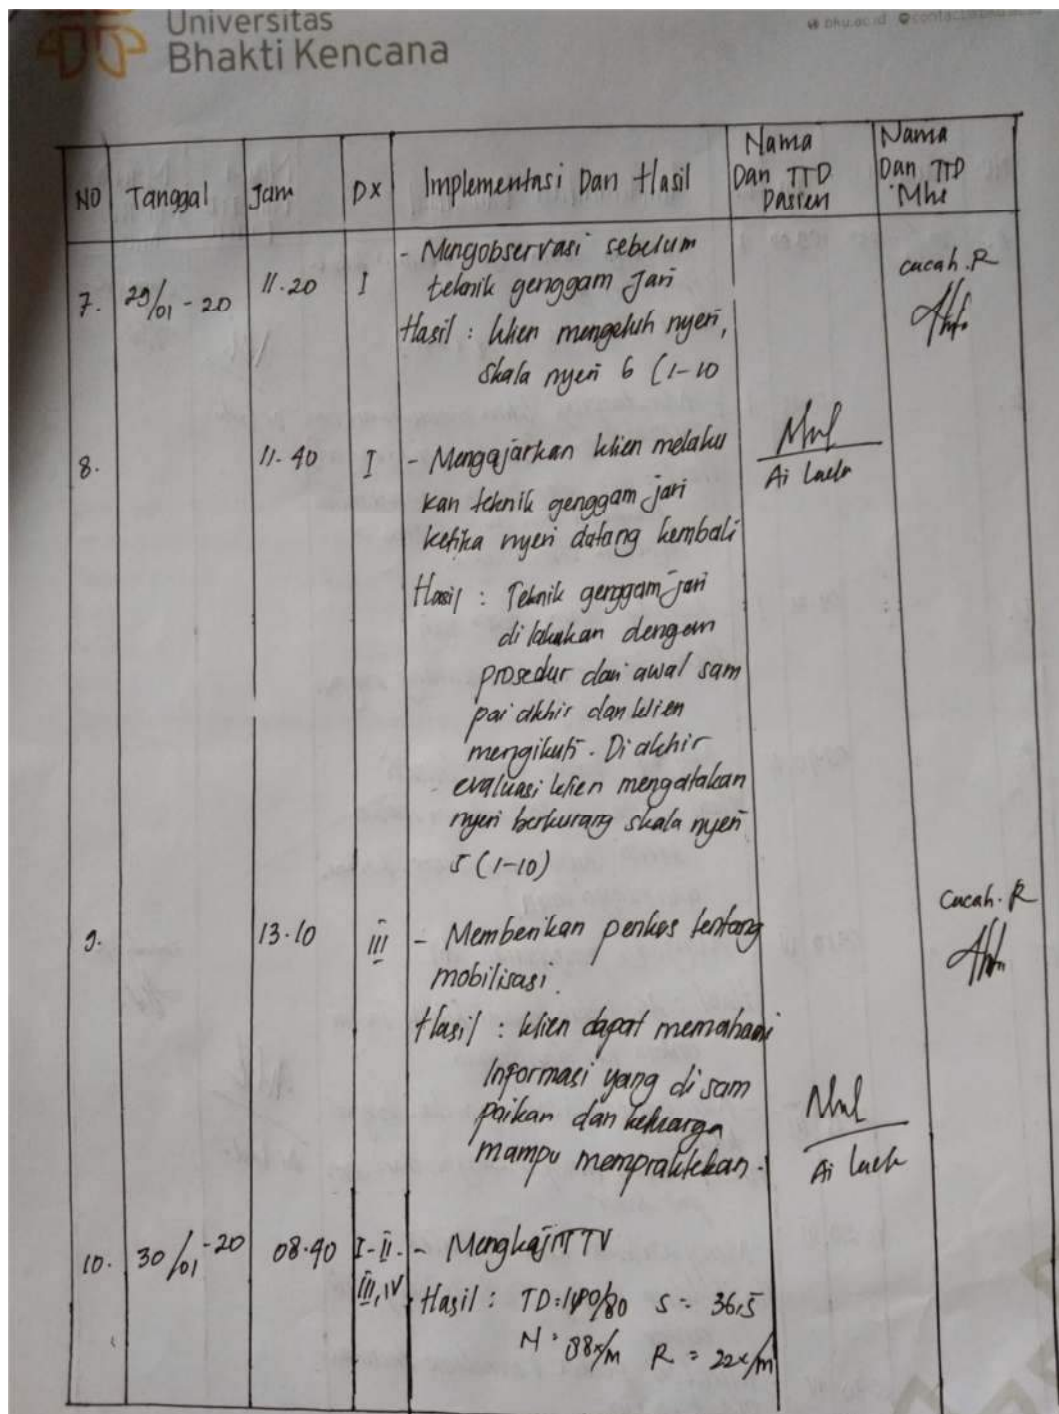 Universitas
Bhakti Kencana
bku.ac.id contact@bku.ac.id
NO
Tanggal
Jam
DX
Implementasi Dan Hasil
Nama
Dan TTD
Pasien
Nama
Dan TTD
Mhs
7. 29/01 - 20 11.20 I - Mengobservasi sebelum
teknik genggam Jari
Hasil : klien mengeluh nyeri,
skala nyeri 6 (1-10
cucah.R
8. 11.40 I - Mengajarkan klien melaku
kan teknik genggam jari
ketika nyeri datang kembali
Hasil : Teknik genggam jari
di lakukan dengan
prosedur dari awal sam
pai akhir dan klien
mengikuti. Di akhir
evaluasi klien mengatakan
nyeri berkurang skala nyeri
5 (1-10)
Ai Laela
9. 13.10 III - Memberikan penkes tentang
mobilisasi.
Hasil : klien dapat memahami
Informasi yang di sam
paikan dan keluarga
mampu mempraktekan.
Cucah.R
Ai Laela
10. 30/01-20 08.40 I-II-
III, IV
- Mengkaji TTV
Hasil : TD:140/80 S = 36,5
N : 88x/m R = 22x/m